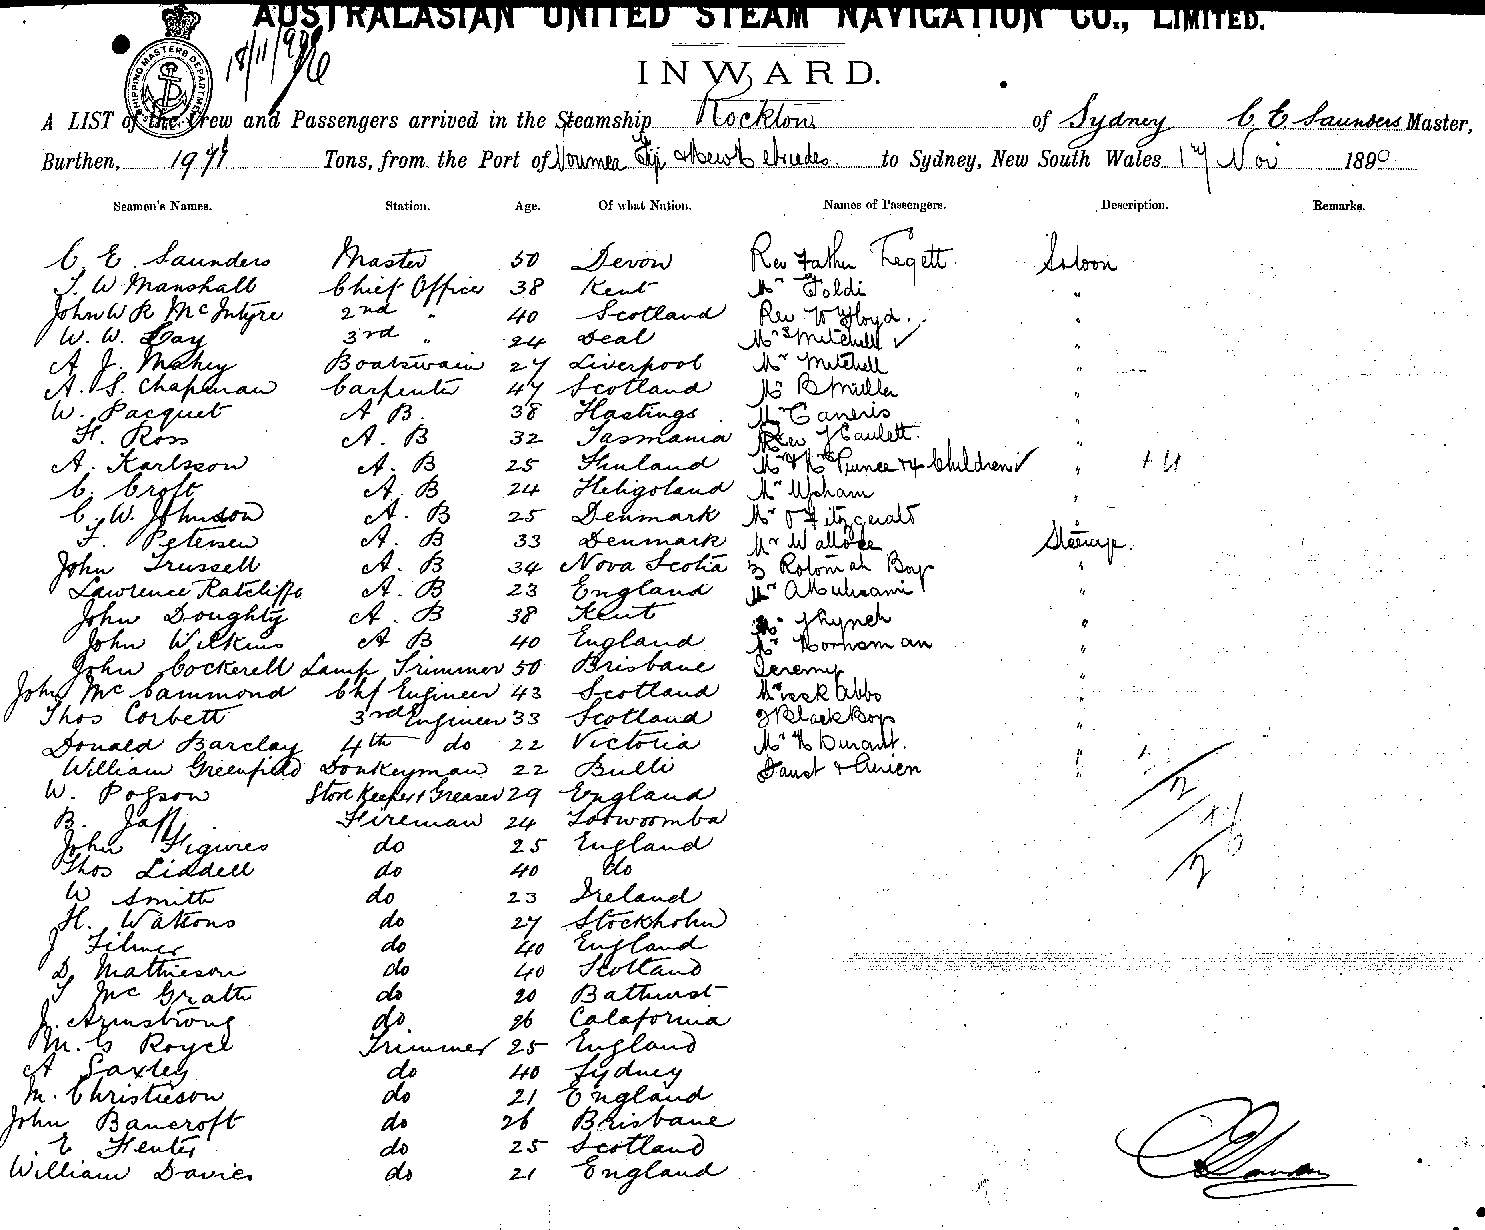 AUSTRALASIAN UNITED STEAM NAVIGATION CO., LIMITED.
SHIPPING MASTERS DEPARTMENT
18/11/96
INWARD.
A LIST of the Crew and Passengers arrived in the Steamship Rockton of Sydney C E Saunders Master,
Burthen, 1971 Tons, from the Port of Noumea Fiji & New Hebrides to Sydney, New South Wales 17 Nov 1890
Seamen's Names. Station. Age. Of what Nation. Names of Passengers. Description. Remarks.
C. E. Saunders Master 50 Devon Rev Father Saloon
T. W Marshall Chief Office 38 Kent Mr Foldi "
John W R McIntyre 2nd " 40 Scotland Rev "
W. W. Day 3rd " 24 Deal Mrs Mitchell ✓ "
A J. Mahey Boatswain 27 Liverpool Mr Mitchell "
A. S. Chapman Carpenter 47 Scotland Mr B Miller "
W. Pacquet A B. 38 Hastings Mr "
H. Ross A. B 32 Tasmania Rev J "
A. Karlsson A. B 25 Finland Mr & Mrs Prince & 4 Children ✓ "
C. Croft A. B 24 Heligoland Mr Upham "
C. W. Johnson A. B 25 Denmark Mr O Fitzgerald "
F. Petersen A. B 33 Denmark Mr Wallace Steerage.
John Trussell A. B 34 Nova Scotia 3 Rotomah Boys "
Lawrence Ratcliffe A. B 23 England Mr "
John Doughty A. B 38 Kent Mr "
John Wilkins A B 40 England Mr Horneman "
John Cockerell Lamp Trimmer 50 Brisbane Jeremy "
John McCammond Chf Engineer 43 Scotland Abbo "
Thos Corbett 3rd Engineer 33 Scotland 2 Black Boys "
Donald Barclay 4th do 22 Victoria Mr H Durant. "
William Greenfield Donkeyman 22 Bulli "
W. Pogson Store Keeper & Greaser 29 England
B. Fireman 24 Toowoomba
John Figures do 25 England
Thos Liddell do 40 do
W Smith do 23 Ireland
H. Watsons do 27 Stockholm
J Filmer do 40 England
D. Mathieson do 40 Scotland
T McGrath do 20 Bathurst
J. Armstrong do 26 Calafornia
M. G Royce Trimmer 25 England
A Saxley do 40 Sydney
M. Christieson do 21 England
John Bancroft do 26 Brisbane
E Henter do 25 Scotland
William Davies do 21 England